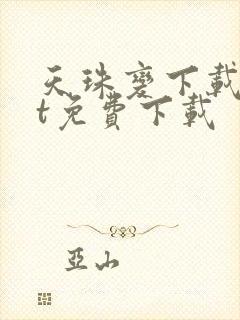 天珠變下載
t免費下載
亞山